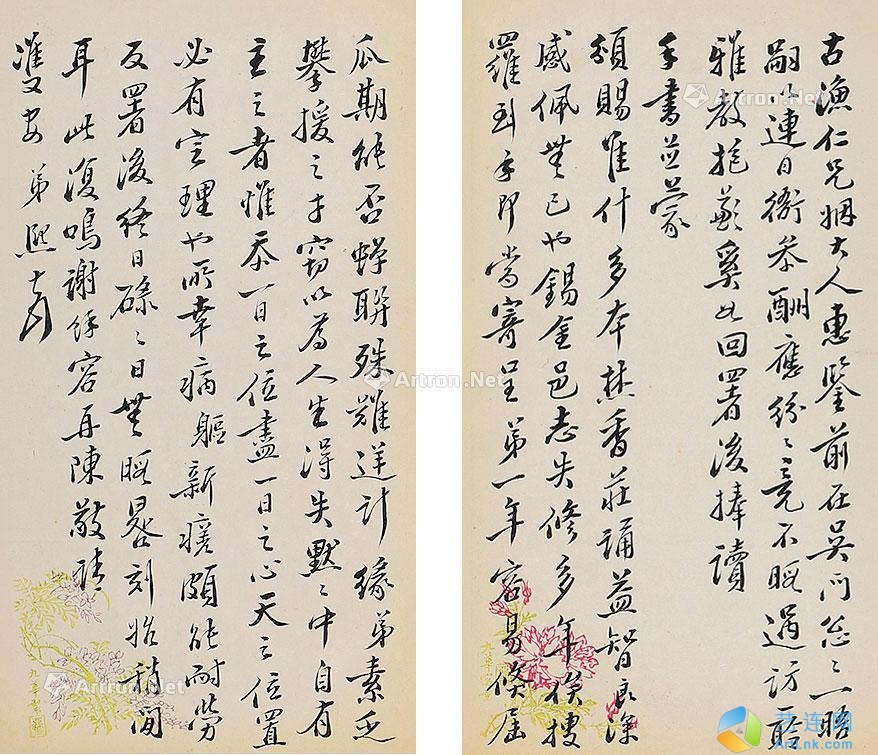 古漁仁兄姻大人惠鑒前在吳門匆匆一晤
嗣以連日衙參酬應紛紛竟不暇過訪聆
雅教抱歉奚如回署後捧讀
手書並蒙
頒賜佳什多本焚香莊誦益智良深
感佩無已也錫金邑志失修多年俟搜
羅到手即當寄呈弟一年容易倏屆
瓜期能否蟬聯殊難逆計緣弟素乏
攀援之才竊以為人生得失默默中自有
主之者惟忝一日之位盡一日之心天之位置
必有定理也所幸病軀新痊頗能耐勞
反署後終日碌碌日無暇晷刻始稍閒
耳此復鳴謝餘容再陳敬請
雙安 弟熙
Artron.Net
Artron.Net
Artron.Net
Artron.Net
Artron.Net
Artron.Net
艺连网
ArtLnk.com